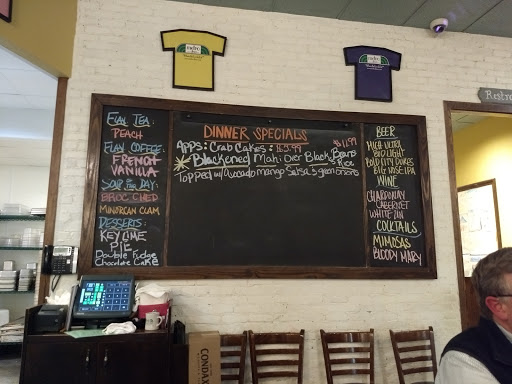 FLAV TEA:
PEACH
FLAV COFFEE:
FRENCH
VANILLA
SOUP of the DAY:
BROC CHED
MINORCAN CLAM
DESSERTS:
KEY LIME
PIE
Double Fudge
Chocolate Cake
DINNER SPECIALS
Apps: Crab Cakes:
Blackened Mahi Over Black Beans
& Rice
$11.99
Topped w/ Avocado Mango Salsa & green onions
BEER
MICH ULTRA
BUD LIGHT
BOLD CITY DUKES
BIG NOSE IPA
WINE
CHARDONNAY
CABERNET
WHITE ZIN
COCKTAILS
MIMOSAS
BLOODY MARY
Restro
CONDA